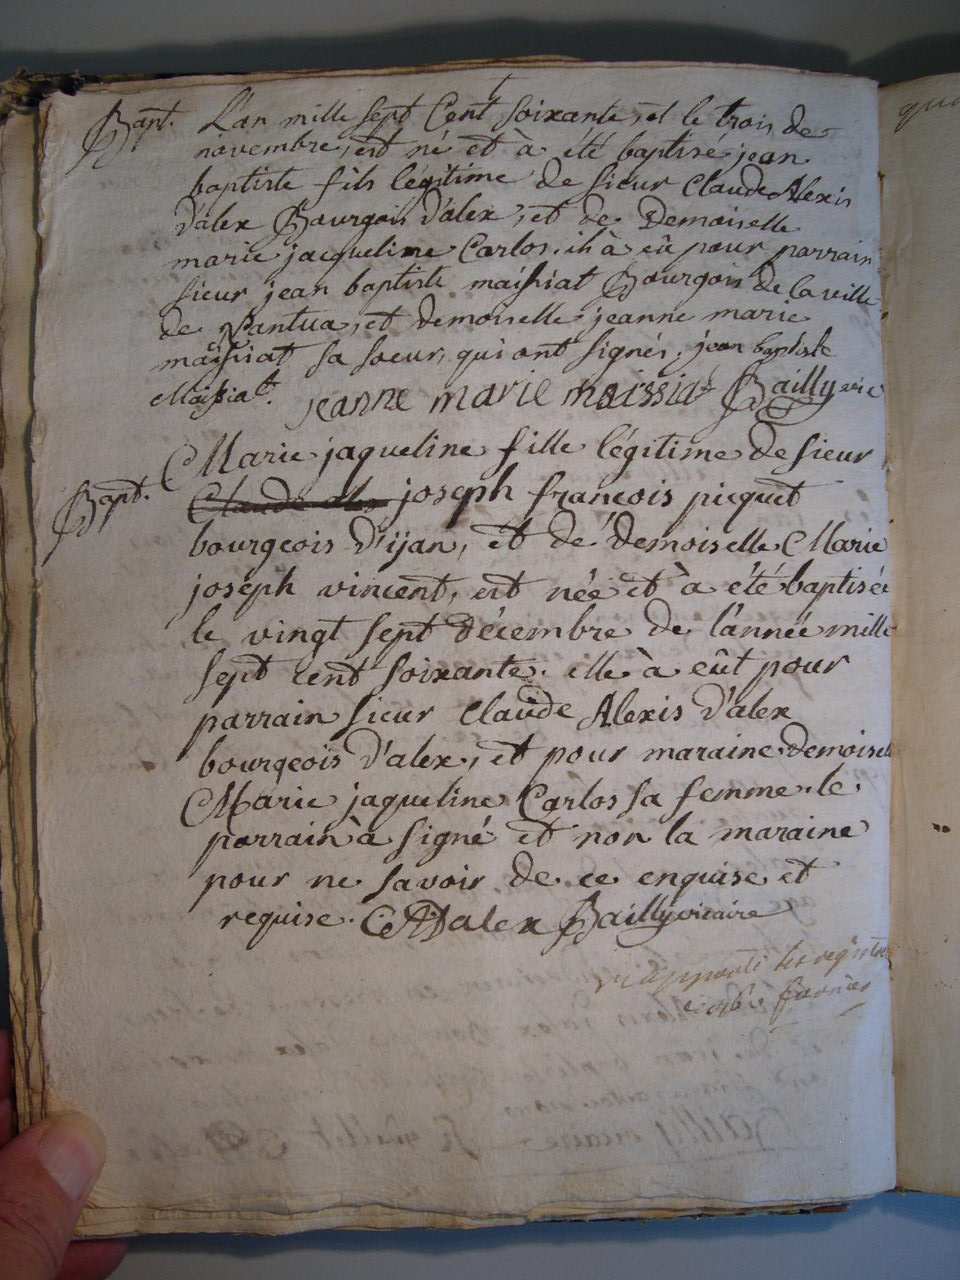 Bapt. L'an mille sept Cent soixante, et le trois de
novembre, est né et à été baptise jean
baptiste fils légitime de sieur Claude Alexis
d'alex Bourgois d'alex, et de Demoiselle
marie jacqueline Carlos. il à eû pour parrain
sieur jean baptiste maissiat Bourgois de la ville
de Nantua, et demoiselle jeanne marie
maissiat sa soeur, qui ont signés. jean baptiste
Maissiat. jeanne marie maissiat Bailly vic
Marie jaqueline fille légitime de sieur
Bapt. Claude Alex joseph francois picquet
bourgeois d'ijan, et de demoiselle Marie
joseph vincent, est née et à été baptisée
le vingt sept décembre de l'année mille
sept cent soixante. elle à eût pour
parrain sieur Claude Alexis d'alex
bourgeois d'alex, et pour maraine demoiselle
Marie jaqueline Carlos sa femme. le
parrain à signé et non la maraine
pour ne savoir de ce enquise et
requise. CADalex Bailly vicaire